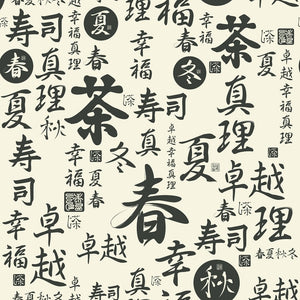 寿司
真理
幸福
夏
春
卓越幸福
茶
春
幸福
夏
真理
寿司
冬
茶
真理
秋
寿司
卓越幸福真理
冬
夏
夏春
寿司
卓越
春
卓越
真理
幸福
卓越
幸福
真理
寿司
秋
春夏秋冬